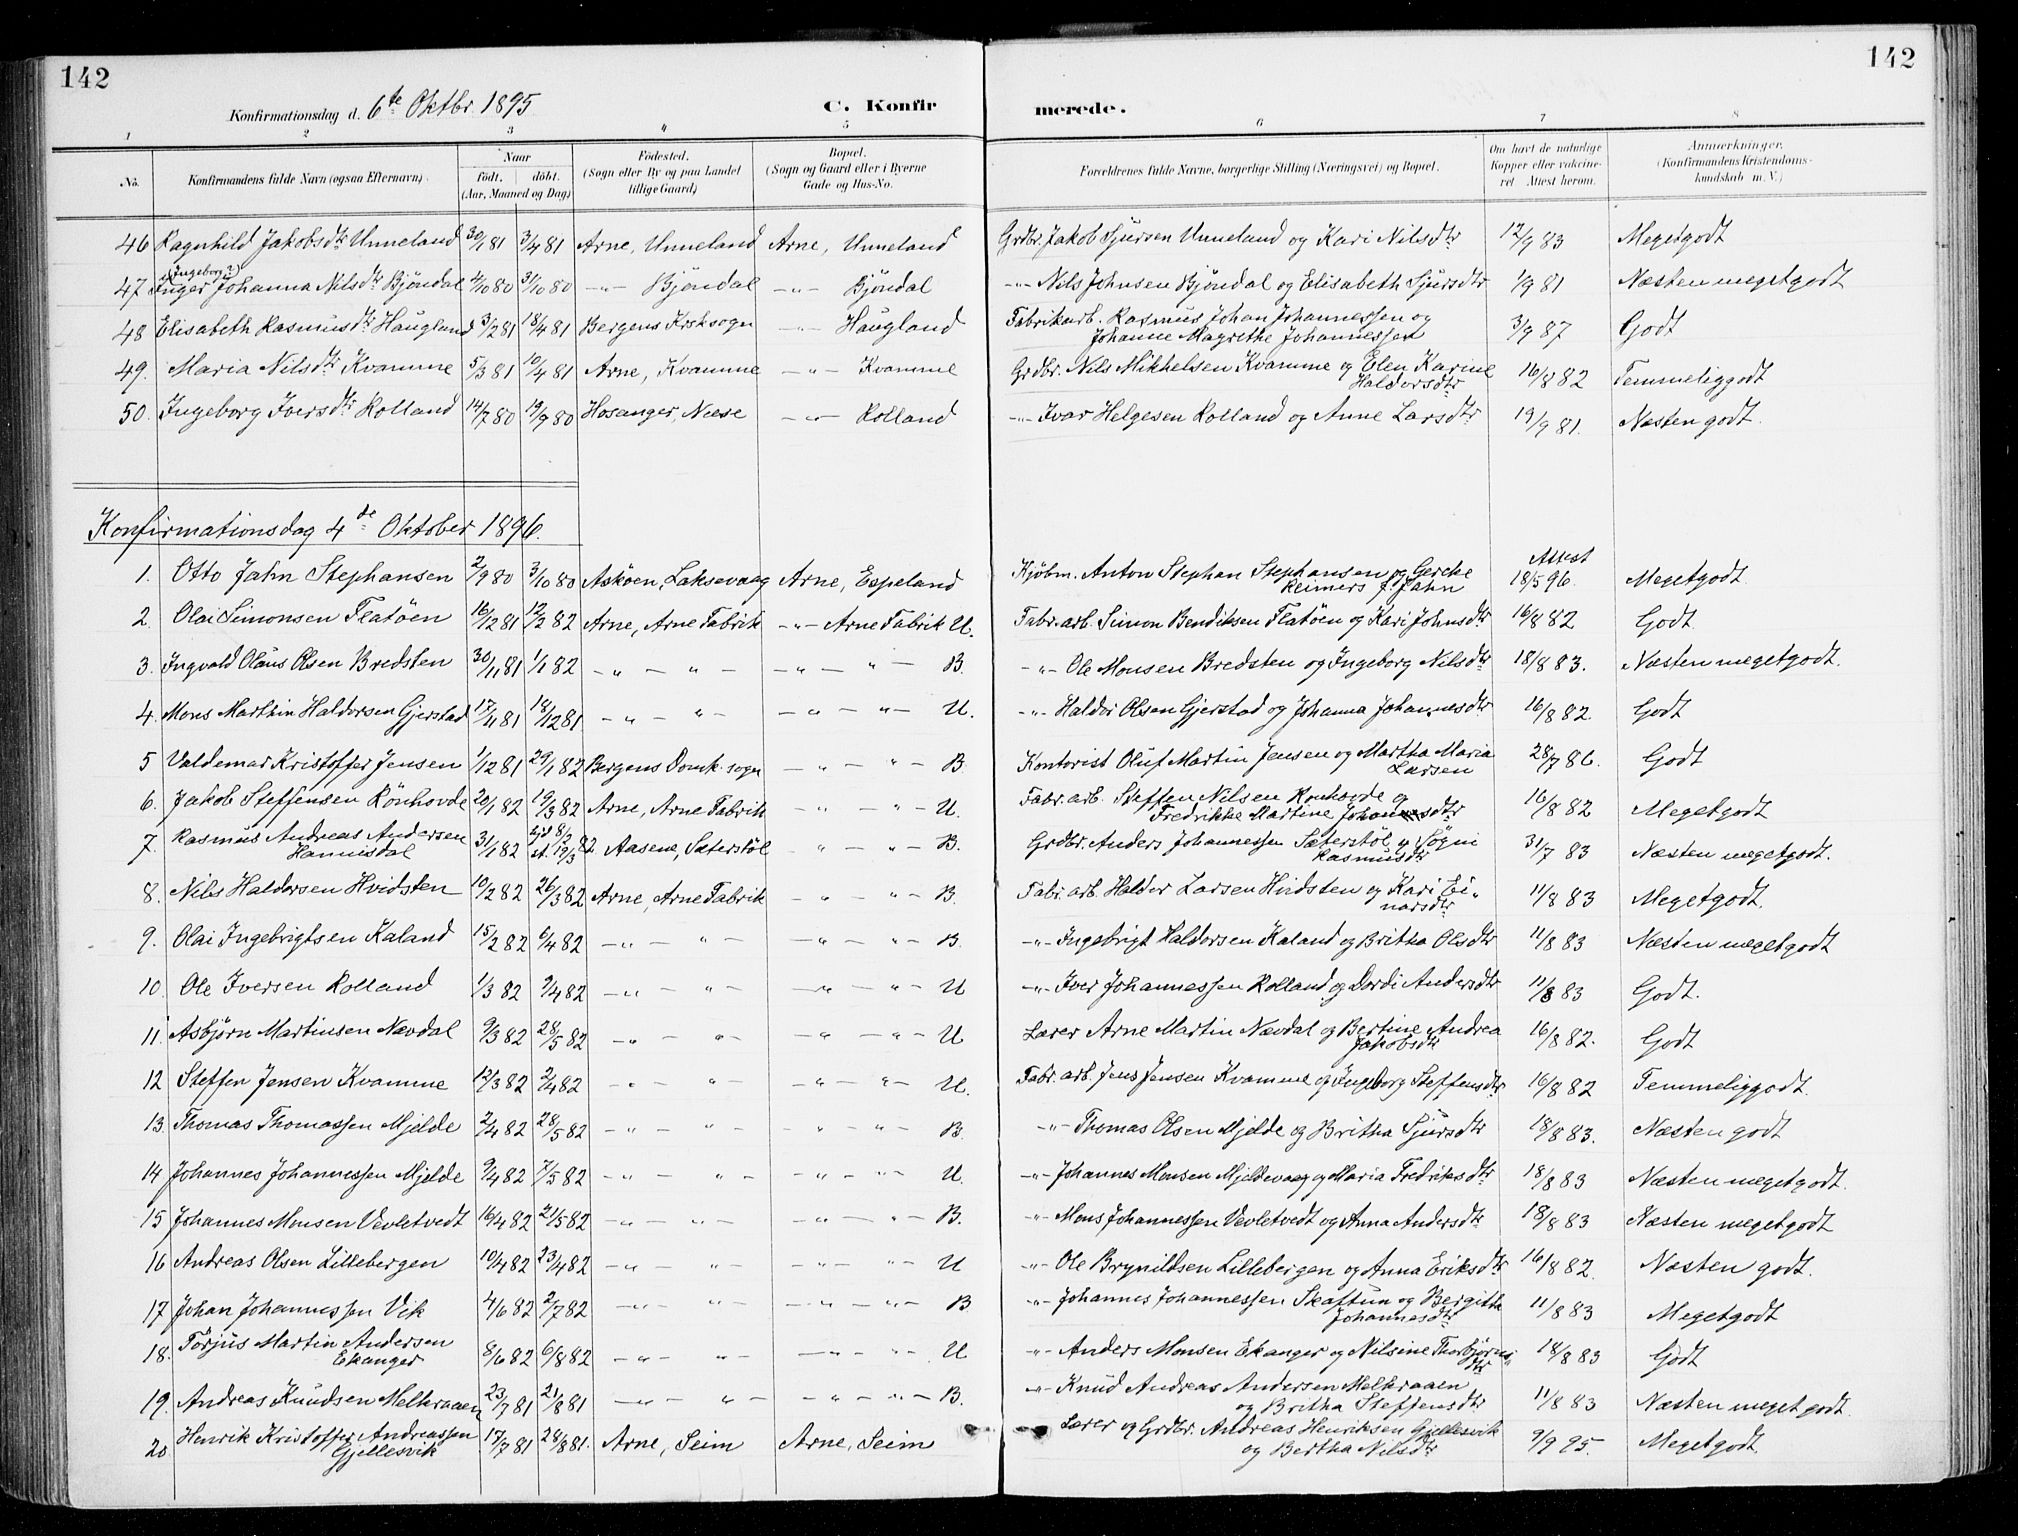 142
142
Konfirmationsdag d. 6te Oktbr. 1895
C. Konfir merede.
1 2 3 4 5 6 7 8
No. Konfirmandens fulde Navn (ogsaa Efternavn). Naar født. døbt. (Aar, Maaned og Dag) Fødested. (Sogn eller By og paa Landet tillige Gaard) Bopæl. (Sogn og Gaard eller i Byerne Gade og Hus-No. Forældrenes fulde Navne, borgerlige Stilling (Næringsvei) og Bopæl. Om havt de naturlige Kopper eller vakcineret. Attest herom. Anmærkninger. (Konfirmandens Kristendomskundskab m. V.)
46 Ragnhild Jakobsdtr Unneland 30/1 81 3/4 81 Arne, Unneland Arne, Unneland Grdbr. Jakob Sjursen Unneland og Kari Nilsdtr 12/9 83 Megetgodt
(Ingeborg?)
47 Inger Johanna Nilsdtr Bjöndal 4/10 80 31/10 80 -"- Bjöndal -"- Bjöndal -"- Nils Johnsen Bjöndal og Elisabeth Sjursdtr 1/9 81 Næsten megetgodt
48 Elisabeth Rasmusdtr Haugland 3/2 81 18/4 81 Bergens Krsksogn -"- Haugland Fabrikarb. Rasmus Johan Johannessen og Johanne Magrethe Johannessen 3/9 87 Godt
49. Maria Nilsdtr Kvamme 5/3 81 10/4 81 Arne, Kvamme -"- Kvamme Grdbr. Nils Mikkelsen Kvamme og Elen Karine Haldorsdtr 16/8 82 Temmeliggodt
50. Ingeborg Iversdtr Rolland 14/7 80 19/9 80 Hosanger, Neese -"- Rolland -"- Ivar Helgesen Rolland og Anne Larsdtr 19/9 81. Næsten godt.
Konfirmationsdag 4de Oktober 1896.
1. Otto Jahn Stephansen 2/9 80 3/10 80 Asköen, Laksevaag Arne, Espeland Kjöbm. Anton Stephan Stephansen og Gercke Reimers f. Jahn Attest 18/5 96. Megetgodt.
2. Olai Simonsen Flatöen 16/12 81 12/2 82 Arne, Arne Fabrik -"- Arne Fabrik U. Fabr.arb. Simon Bendiksen Flatöen og Kari Johnsdtr 16/8 82 Godt
3. Ingvald Olaus Olsen Bredsten 30/11 81 1/1 82 -"- -"- -"- -"- B. -"- Ole Monsen Bredsten og Ingeborg Nilsdtr 18/8 83. Næsten megetgodt.
4. Mons Marthin Haldorsen Gjerstad 17/11 81 18/12 81 -"- -"- -"- -"- U. -"- Haldor Olsen Gjerstad og Johanna Johannesdtr 16/8 82. Godt
5 Valdemar Kristoffer Jensen 1/12 81 29/1 82 Bergens Domk. sogn -"- -"- B. Kontorist Oluf Martin Jensen og Martha Maria Larsen 28/7 86. Godt
6. Jakob Steffensen Rönhovde 20/1 82 19/3 82 Arne, Arne Fabrik -"- -"- U. Fabr.arb. Steffen Nilsen Ronhovde og Fredrikke Martine Johannesdtr 16/8 82 Megetgodt
7. Rasmus Andreas Andersen Hannisdal 31/1 82 8/2 st. 19/3 82 Aasene, Sæterstöl -"- -"- B. Grdbr. Anders Johannessen Sæterstöl og Sögni Rasmusdtr 31/7 83 Næsten megetgodt.
8. Nils Haldorsen Hvidsten 10/2 82 26/3 82 Arne, Arne Fabrik -"- -"- B. Fabr.arb. Haldor Larsen Hvidsten og Kari Einarsdtr 11/8 83 Megetgodt.
9. Olai Ingebrigtsen Kaland 15/2 82 6/4 82 -"- -"- -"- -"- B. -"- Ingebrigt Haldorsen Kaland og Britha Olsdtr 11/8 83 Næsten megetgodt
10. Ole Iversen Rolland 1/3 82 9/4 82 -"- -"- -"- -"- U -"- Iver Johannessen Rolland og Dordi Andersdtr 11/8 83 Godt.
11. Asbjörn Martinsen Nævdal 9/3 82 28/5 82 -"- -"- -"- -"- U Lærer Arne Martin Nævdal og Bertine Andrea Jakobsdtr 16/8 82. Godt
12 Steffen Jensen Kvamme 12/3 82 2/4 82 -"- -"- -"- -"- U. Fabr.arb. Jens Jensen Kvamme og Ingeborg Steffensdtr 16/8 82 Temmeliggodt.
13. Thomas Thomassen Mjelde 2/4 82 28/5 82 -"- -"- -"- -"- B. -"- Thomas Olsen Mjelde og Britha Sjursdtr 18/8 83. Næsten godt
14 Johannes Johannessen Mjelde 9/4 82 7/5 82 -"- -"- -"- -"- U. -"- Johannes Monsen Mjeldevaag og Maria Fredriksdtr 18/8 83 Næsten megetgodt.
15 Johannes Monsen Vevletvedt 16/4 82 21/5 82 -"- -"- -"- -"- B. -"- Mons Johannessen Vevletvedt og Anna Andersdtr 18/8 83 Næsten megetgodt
16 Andreas Olsen Lillebergen 10/4 82 23/4 82 -"- -"- -"- -"- U -"- Ole Brynildsen Lillebergen og Anna Eriksdtr 16/8 82. Næsten godt.
17 Johan Johannessen Vik 4/6 82 2/7 82 -"- -"- -"- -"- B -"- Johannes Johannessen Skaftun og Bergitha Johannesdtr 11/8 83 Megetgodt
18. Torjus Martin Andersen Ekanger 8/6 82 6/8 82 -"- -"- -"- -"- U -"- Anders Monsen Ekanger og Nilsine Thorbjörnsdtr 18/8 83 Godt
19. Andreas Knudsen Melkraaen 23/7 81 21/8 81 -"- -"- -"- -"- B. -"- Knud Andreas Andersen Melkraaen og Britha Steffensdtr 11/8 83 Næsten meget godt.
20 Henrik Kristoffer Andreassen Gjellesvik 17/7 81 28/8 81. Arne, Seim Arne, Seim Lærer og Grdbr. Andreas Henriksen Gjellesvik og Bertha Nilsdtr 9/9 95. Megetgodt.